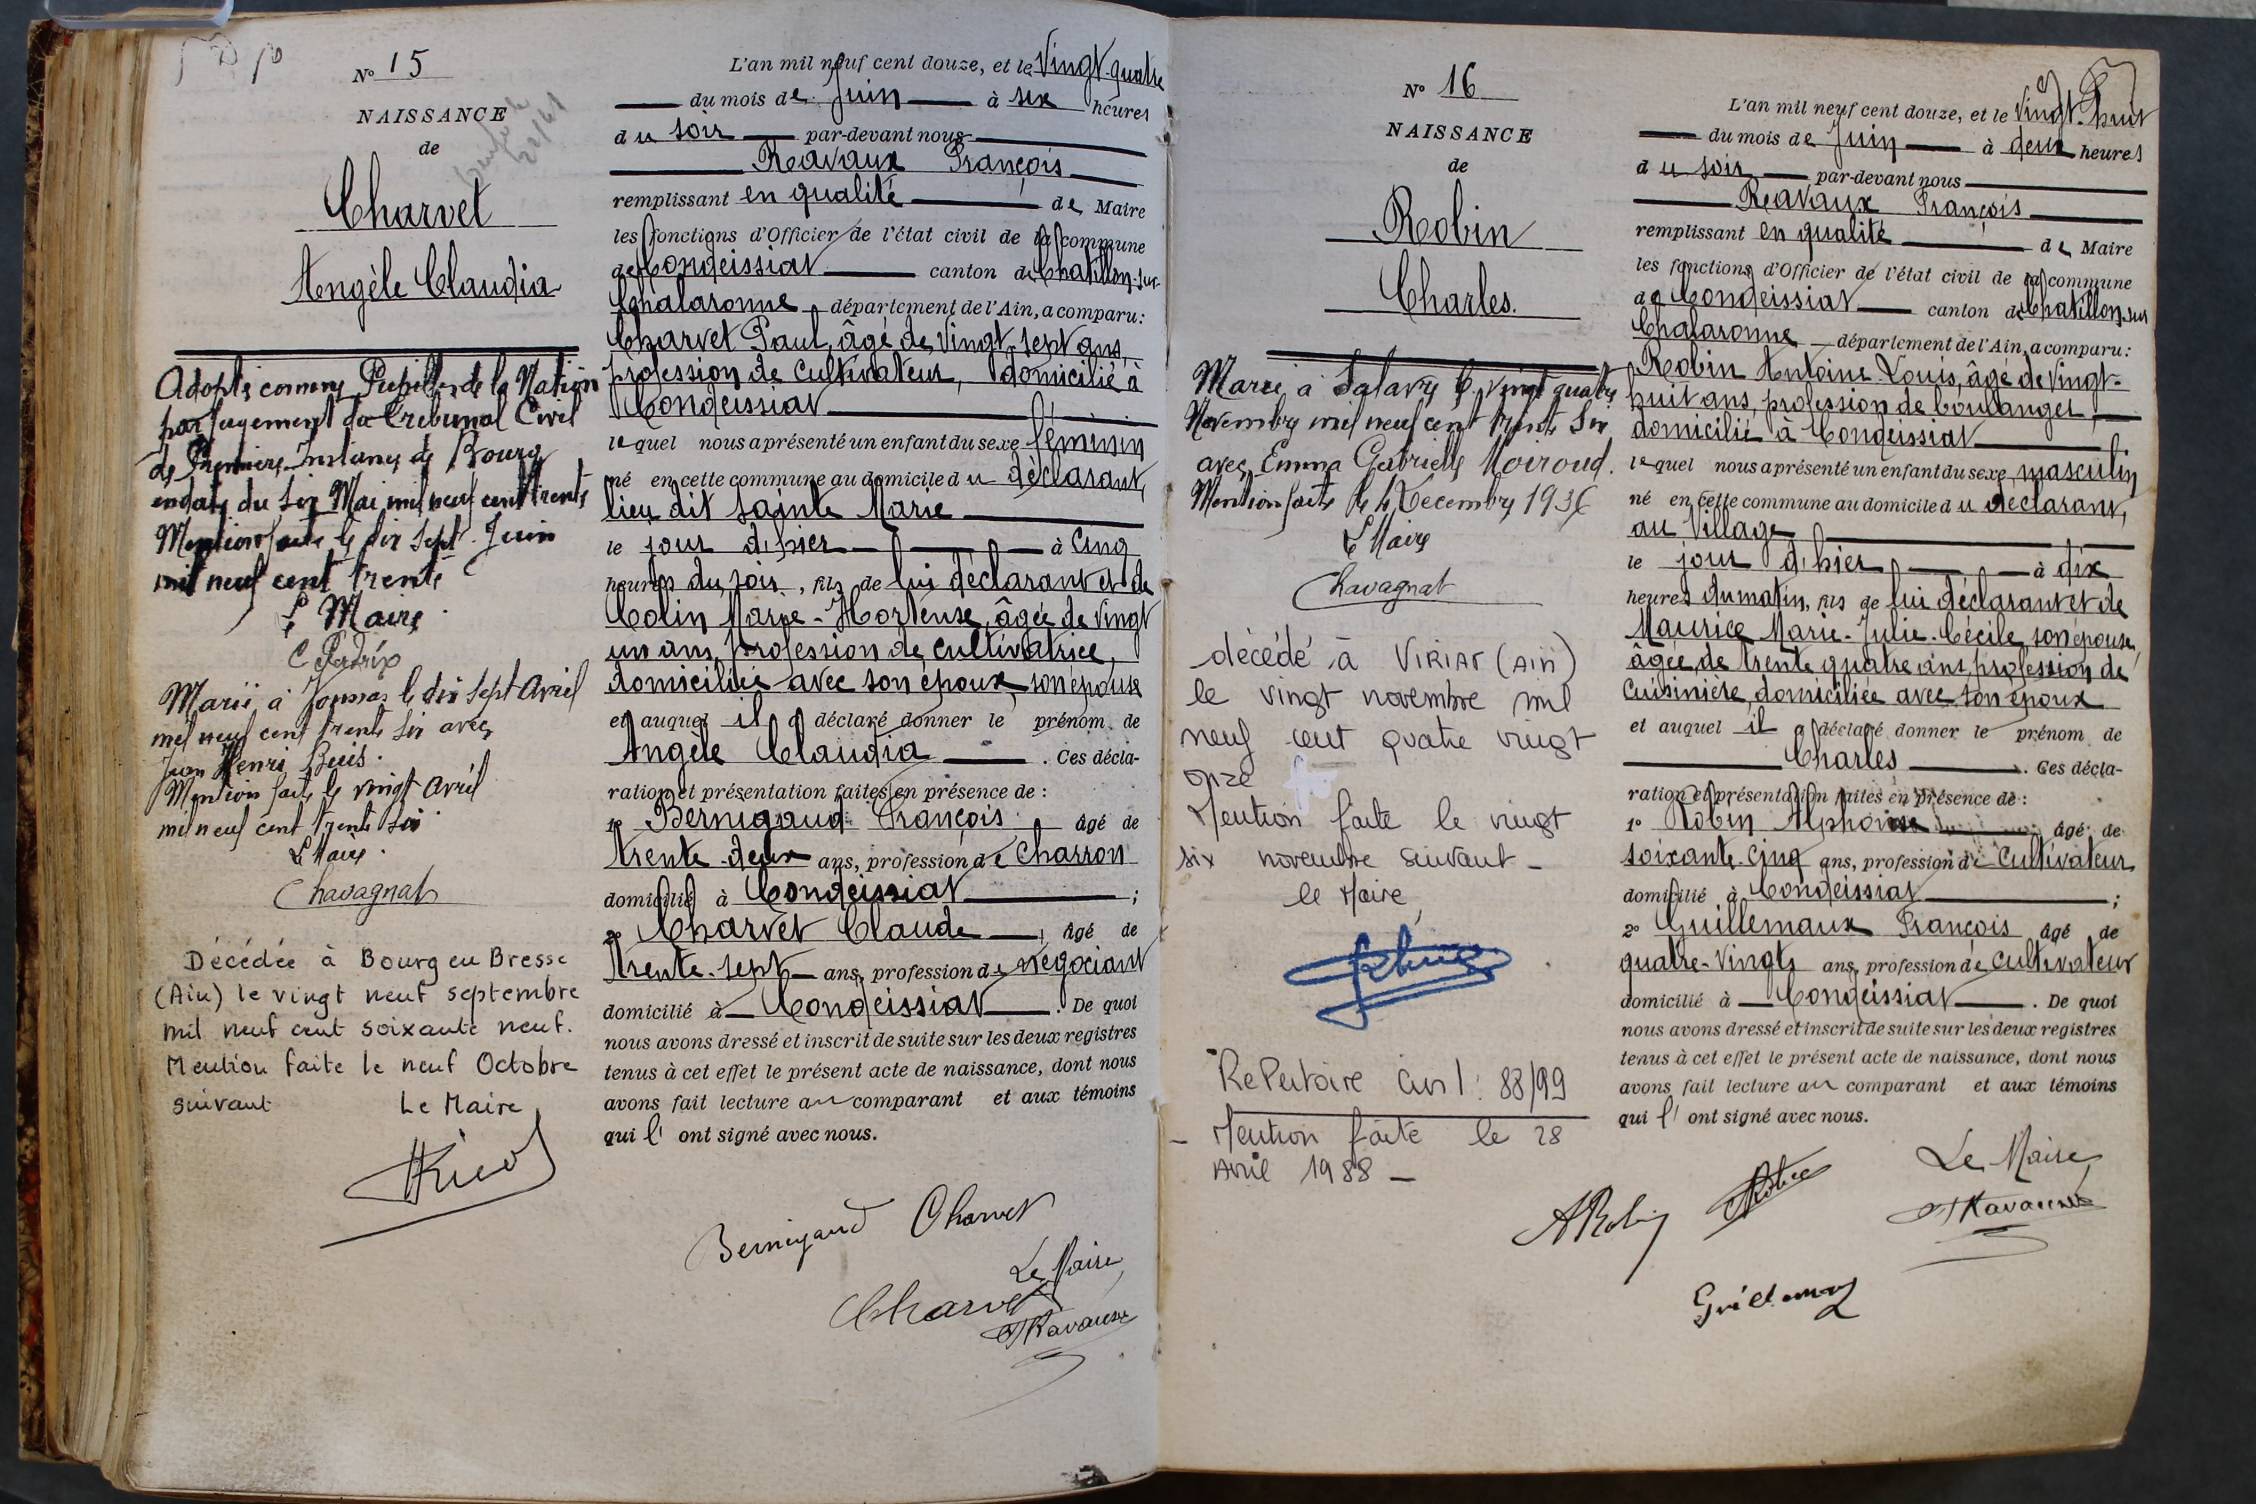 N° 15
NAISSANCE
de
Charvet
Angèle Claudia
Adopté comme Pupille de la Nation
par jugement du Tribunal Civil
de Première Instance de Bourg
en date du six Mai mil neuf cent trente
Mention faite le dix sept Juin
mil neuf cent trente
Le Maire
Marié à Jonnas le dix sept Avril
mil neuf cent trente six avec
Jean Henri Buis.
Mention faite le vingt Avril
mil neuf cent trente six
Le Maire
Chavagnat
Décédée à Bourg en Bresse
(Ain) le vingt neuf septembre
mil neuf cent soixante neuf.
Mention faite le neuf Octobre
suivant Le Maire
L'an mil neuf cent douze, et le Vingt-quatre
du mois de Juin à six heures
du soir par-devant nous
Ravaux François
remplissant en qualité de Maire
les fonctions d'Officier de l'état civil de la commune
de Condeissiat canton de Chatillon-sur-
Chalaronne département de l'Ain, a comparu:
Charvet Paul, âgé de Vingt-sept ans,
profession de cultivateur, domicilié à
Condeissiat
lequel nous a présenté un enfant du sexe féminin
né en cette commune au domicile du déclarant,
lieu dit Sainte Marie
le jour d'hier à cinq
heures du soir, fils de lui déclarant et de
Colin Marie-Hortense, âgée de vingt
un ans, profession de cultivatrice,
domiciliée avec son époux, son épouse
et auquel il a déclaré donner le prénom de
Angèle Claudia . Ces décla-
ration et présentation faites en présence de :
1° Bernigaud François âgé de
trente-deux ans, profession de charron
domicilié à Condeissiat ;
2° Charvet Claude, âgé de
trente-sept ans, profession de négociant
domicilié à Condeissiat . De quoi
nous avons dressé et inscrit de suite sur les deux registres
tenus à cet effet le présent acte de naissance, dont nous
avons fait lecture au comparant et aux témoins
qui l' ont signé avec nous.
Bernigaud Charvet
Le Maire,
Charvet
Ravaux
N° 16
NAISSANCE
de
Robin
Charles.
Marié à Salavre le vingt quatre
Novembre mil neuf cent trente six
avec Emma Gabrielle Moiroud.
Mention faite le 4 Décembre 1936
Le Maire
Chavagnat
décédé à VIRIAT (AIN)
le vingt novembre mil
neuf cent quatre vingt
onze
Mention faite le vingt
six novembre suivant -
le Maire,
Repertoire Civil : 88/99
- Mention faite le 28
Avril 1988 -
L'an mil neuf cent douze, et le Vingt-huit
du mois de Juin à deux heures
du soir par-devant nous
Ravaux François
remplissant en qualité de Maire
les fonctions d'Officier de l'état civil de la commune
de Condeissiat canton de Chatillon-sur
Chalaronne département de l'Ain, a comparu:
Robin Antoine-Louis, âgé de vingt-
huit ans, profession de boulanger,
domicilié à Condeissiat
lequel nous a présenté un enfant du sexe masculin
né en cette commune au domicile du déclarant,
au Village
le jour d'hier à dix
heures du matin, fils de lui déclarant et de
Maurice Marie-Julie-Cécile, son épouse,
âgée de trente quatre ans, profession de
cuisinière domiciliée avec son époux
et auquel il a déclaré donner le prénom de
Charles . Ces décla-
ration et présentation faites en présence de :
1° Robin Alphonse âgé de
soixante-cinq ans, profession de cultivateur
domicilié à Condeissiat ;
2° Guillemaux François âgé de
quatre-vingts ans, profession de cultivateur
domicilié à Condeissiat . De quoi
nous avons dressé et inscrit de suite sur les deux registres
tenus à cet effet le présent acte de naissance, dont nous
avons fait lecture au comparant et aux témoins
qui l' ont signé avec nous.
Le Maire,
A Robin Robin
Ravaux